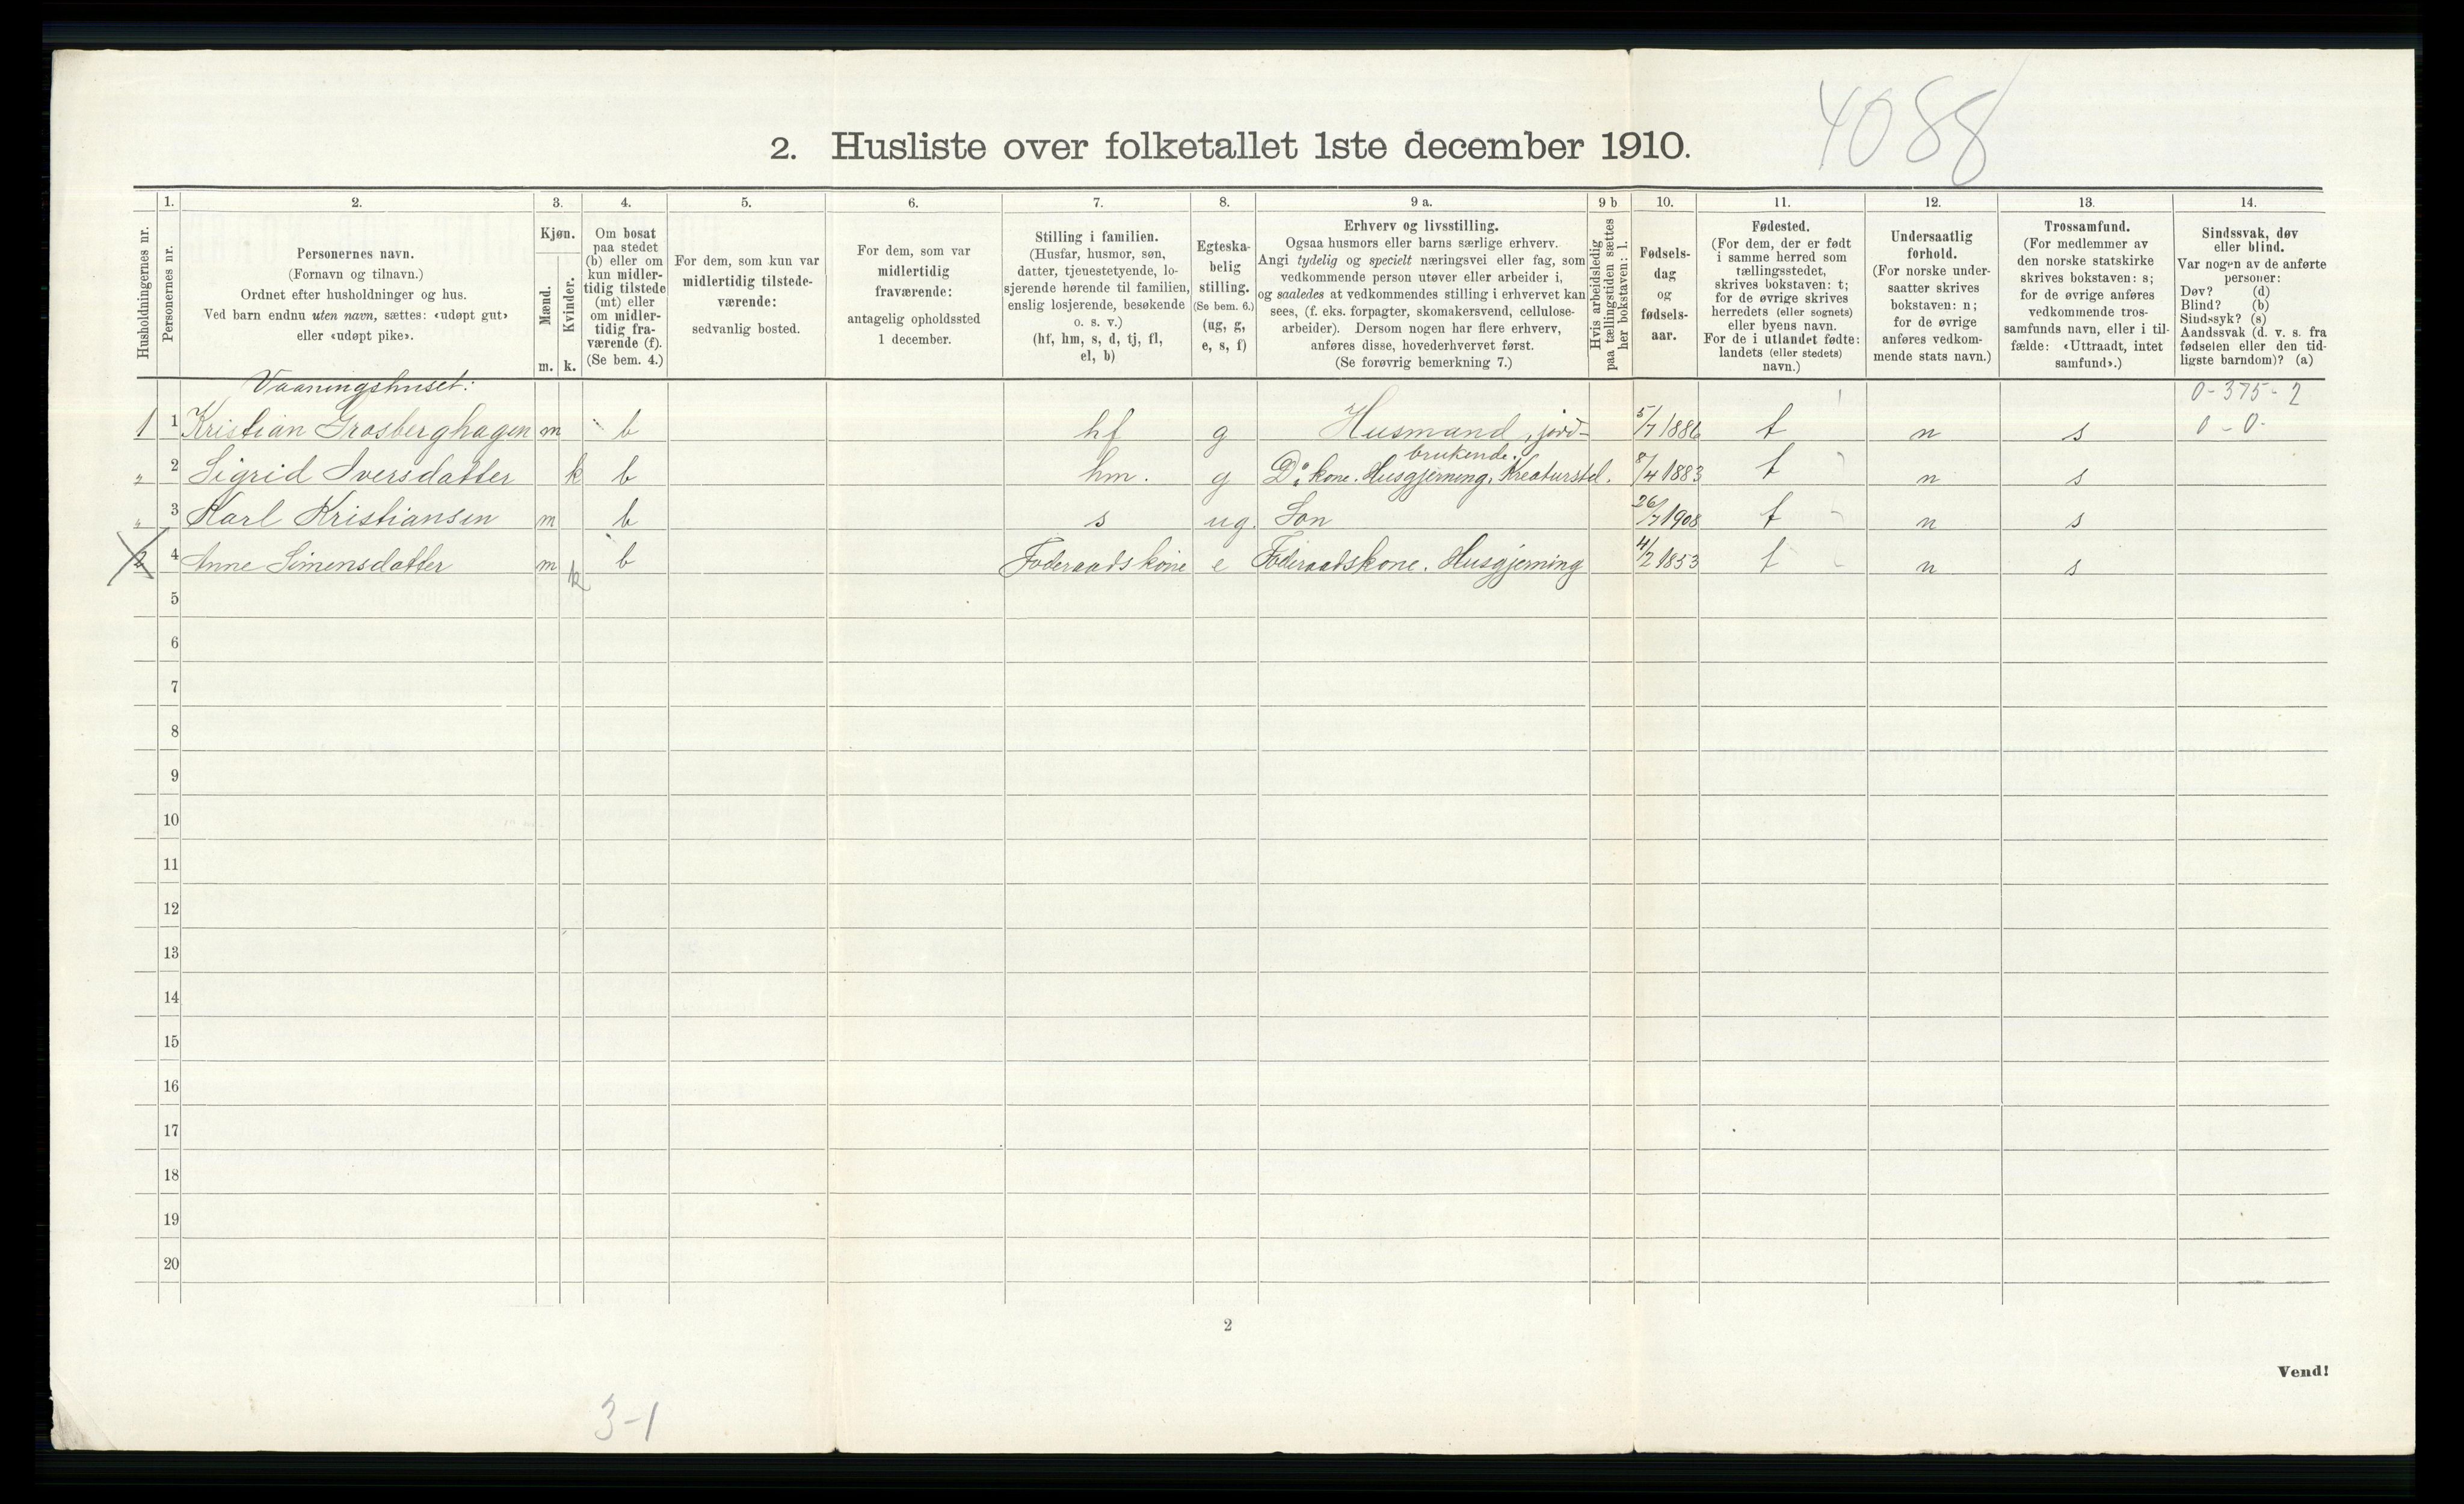 4088
2. Husliste over folketallet 1ste december 1910.
1. 2. 3. 4. 5. 6. 7. 8. 9 a. 9 b 10. 11. 12. 13. 14.
Husholdningernes nr.
Personernes nr.
Personernes navn.
(Fornavn og tilnavn.)
Ordnet efter husholdninger og hus.
Ved barn endnu uten navn, sættes: «udøpt gut»
eller «udøpt pike».
Kjøn.
Mænd.
Kvinder.
m. k.
Om bosat
paa stedet
(b) eller om
kun midler-
tidig tilstede
(mt) eller
om midler-
tidig fra-
værende (f).
(Se bem. 4.)
For dem, som kun var
midlertidig tilstede-
værende:
sedvanlig bosted.
For dem, som var
midlertidig
fraværende:
antagelig opholdssted
1 december.
Stilling i familien.
(Husfar, husmor, søn,
datter, tjenestetyende, lo-
sjerende hørende til familien,
enslig losjerende, besøkende
o. s. v.)
(hf, hm, s, d, tj, fl,
el, b)
Egteska-
belig
stilling.
(Se bem. 6.)
(ug, g,
e, s, f)
Erhverv og livsstilling.
Ogsaa husmors eller barns særlige erhverv.
Angi tydelig og specielt næringsvei eller fag, som
vedkommende person utøver eller arbeider i,
og saaledes at vedkommendes stilling i erhvervet kan
sees, (f. eks. forpagter, skomakersvend, cellulose-
arbeider). Dersom nogen har flere erhverv,
anføres disse, hovederhvervet først.
(Se forøvrig bemerkning 7.)
Hvis arbeidsledig
paa tællingstiden sættes
her bokstaven: l.
Fødsels-
dag
og
fødsels-
aar.
Fødested.
(For dem, der er født
i samme herred som
tællingsstedet,
skrives bokstaven: t;
for de øvrige skrives
herredets (eller sognets)
eller byens navn.
For de i utlandet fødte:
landets (eller stedets)
navn.)
Undersaatlig
forhold.
(For norske under-
saatter skrives
bokstaven: n;
for de øvrige
anføres vedkom-
mende stats navn.)
Trossamfund.
(For medlemmer av
den norske statskirke
skrives bokstaven: s;
for de øvrige anføres
vedkommende tros-
samfunds navn, eller i til-
fælde: «Uttraadt, intet
samfund».)
Sindssvak, døv
eller blind.
Var nogen av de anførte
personer:
Døv? (d)
Blind? (b)
Sindssyk? (s)
Aandssvak (d. v. s. fra
fødselen eller den tid-
ligste barndom)? (a)
Vaaningshuset: 0-375-2
1 1 Kristian Grosberghagen m b hf g Husmand, jord- 5/7 1886 t n s 0-0
brukende.
" 2 Sigrid Iversdatter k b hm. g Do kone. Husgjerning, Kreaturstel. 8/4 1883 t n s
" 3 Karl Kristiansen m b s ug. Søn 26/7 1908 t n s
2 4 Anne Simensdatter m k b Føderaadskone e Føderaadskone. Husgjerning 4/2 1853 t n s
5
6
7
8
9
10
11
12
13
14
15
16
17
18
19
20
2
Vend!
3-1